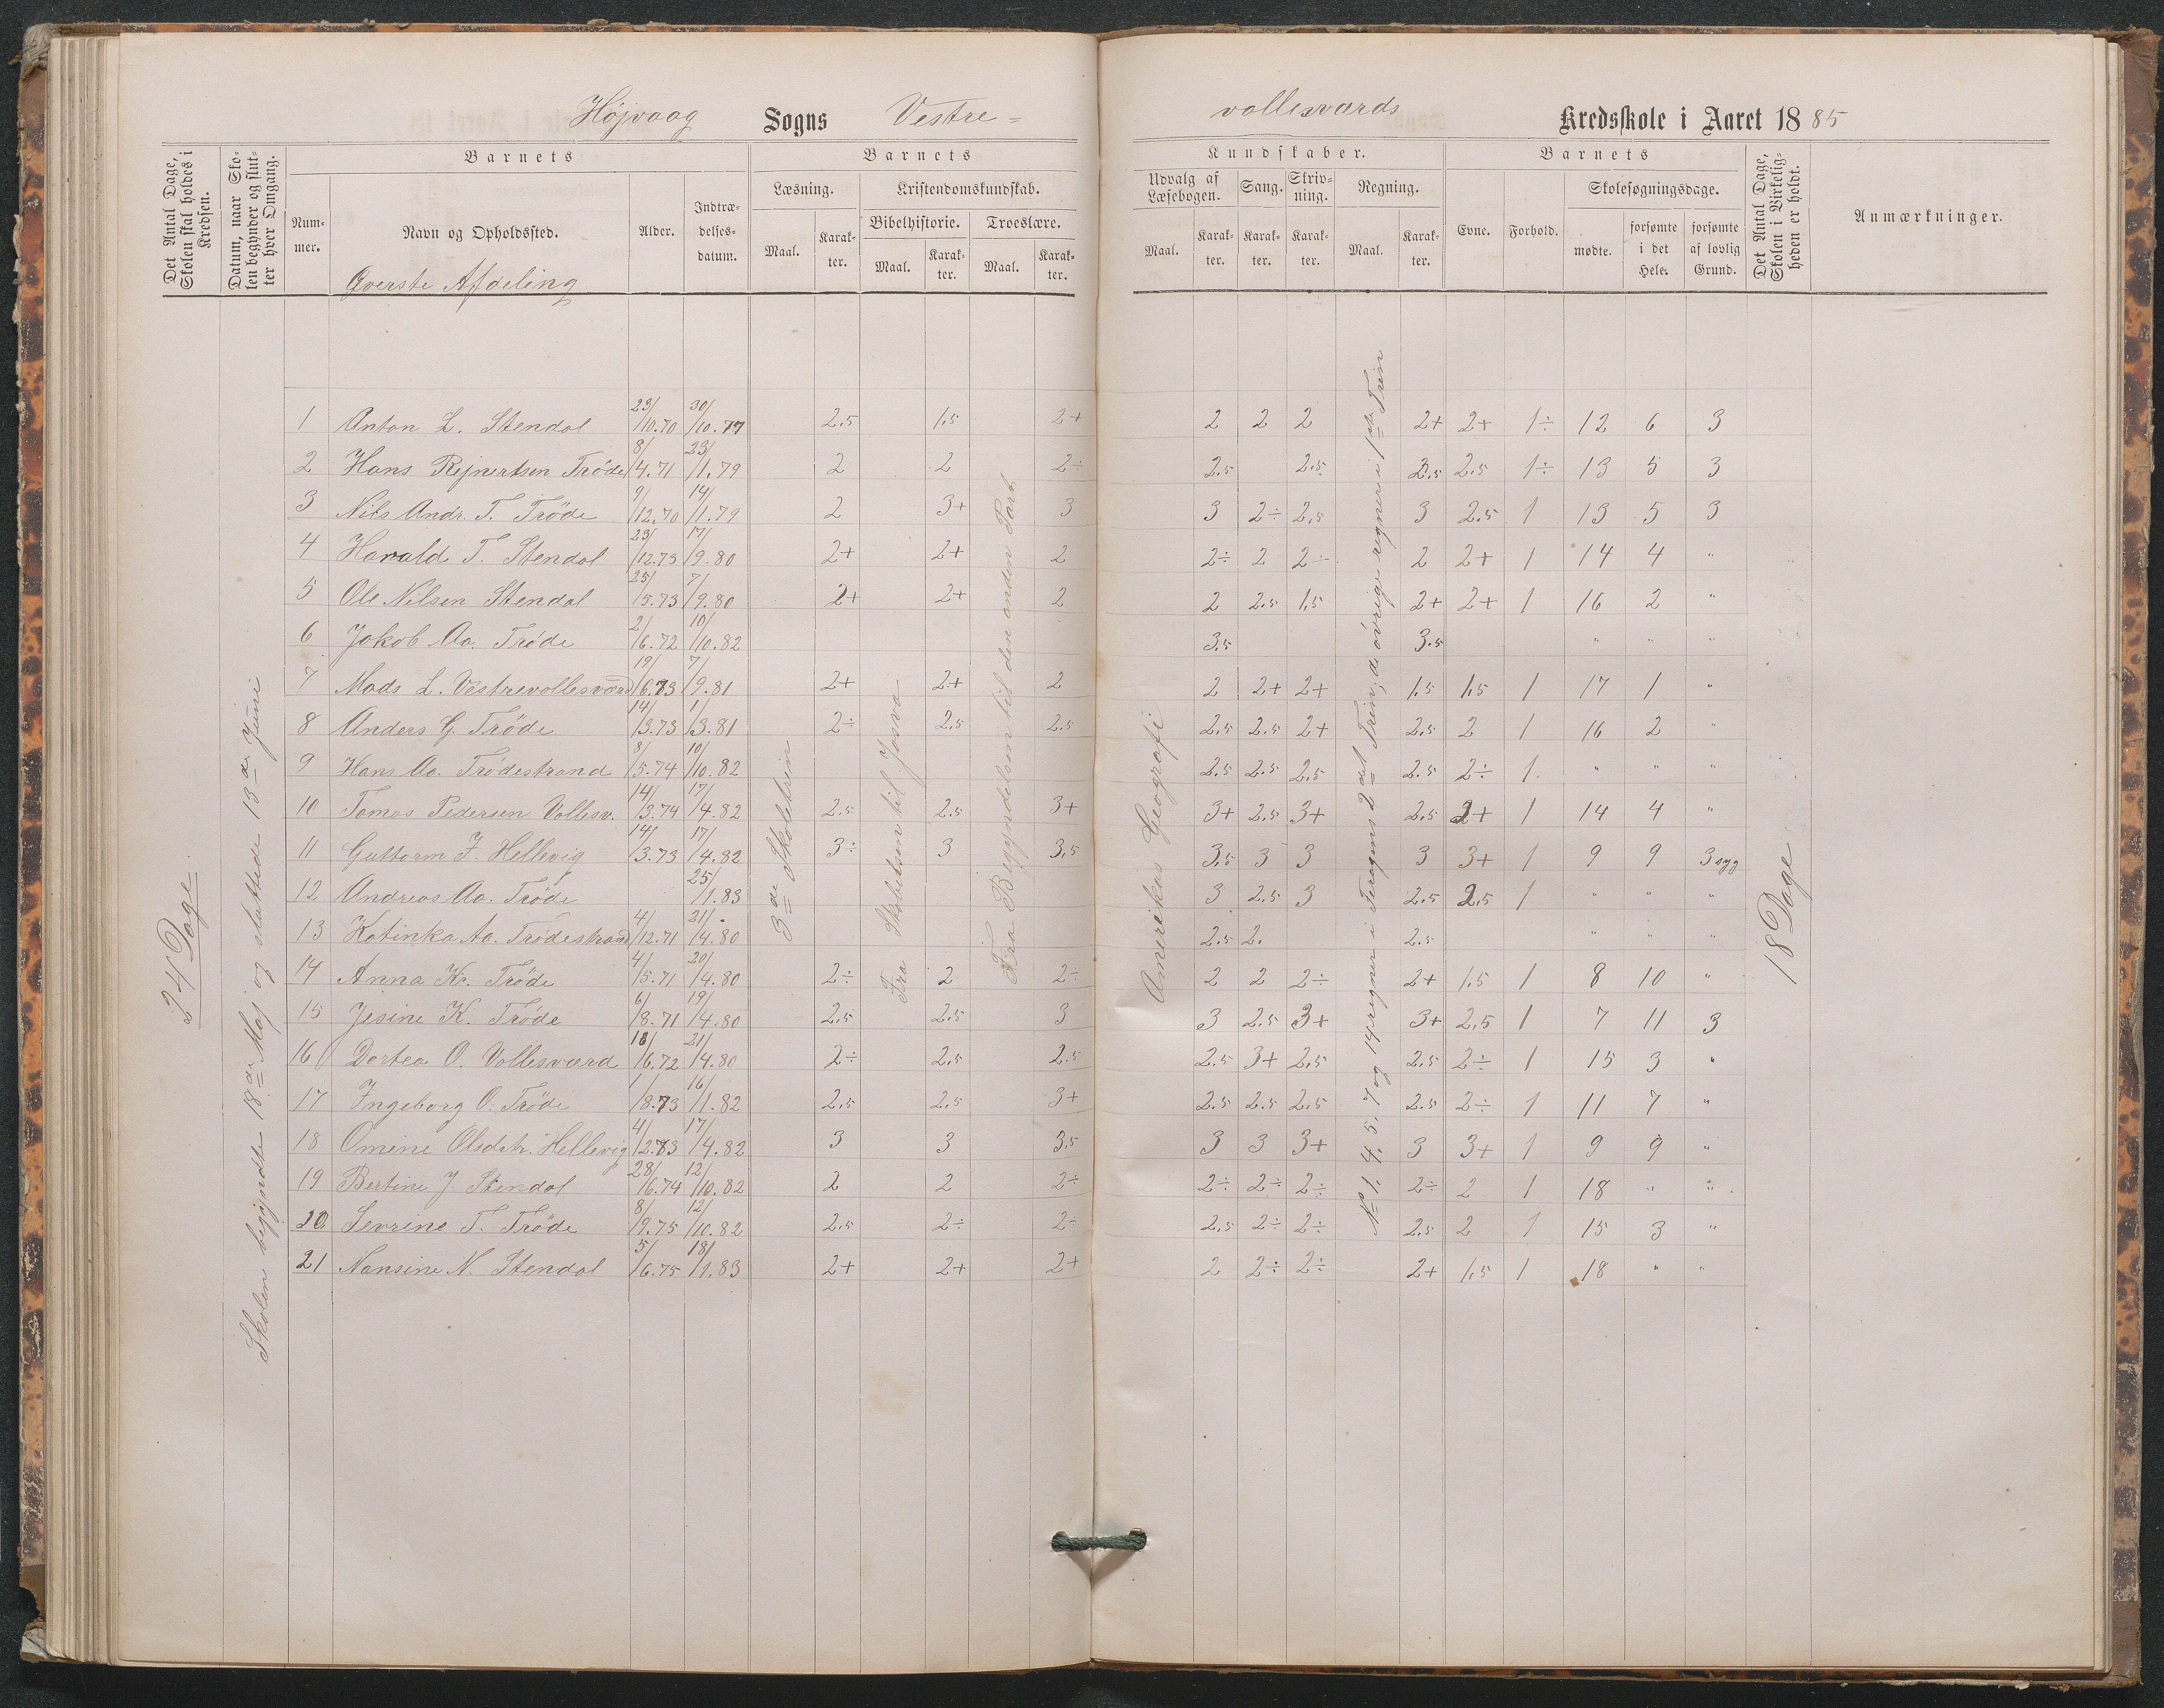 Højvaag Sogns Vestre= vollesværds Kredsskole i Aaret 1885
Det Antal Dage, Skolen skal holdes i Kredsen.
Datum, naar Skolen begynder og slutter hver Omgang.
Barnets
Nummer.
Navn og Opholdssted.
Alder.
Indtrædelsesdatum.
Barnets
Læsning.
Maal.
Karakter.
Kristendomskundskab.
Bibelhistorie.
Maal.
Karakter.
Troeslære.
Maal.
Karakter.
Kundskaber.
Udvalg af Læsebogen.
Maal.
Karakter.
Sang.
Karakter.
Skrivning.
Karakter.
Regning.
Maal.
Karakter.
Barnets
Evne.
Forhold.
Skolesøgningsdage.
mødte.
forsømte i det Hele.
forsømte af lovlig Grund.
Det Antal Dage, Skolen i Virkeligheden er holdt.
Anmærkninger.
Øverste Afdeling
24 Dage
Skolen begyndte 18de Maj og sluttede 13de Juni
3de Skoletrin
Fra Skabelsen til Josva
Fra Begyndelsen til den anden Part
Amerikas Geografi
No 1. 4. 5. 7 og 14 regner i Foragens 2det Trin, de øvrige regner i 1ste Trin
18 Dage
1 Anton L. Stendal 23/10.70 30/10.77 2,5 1,5 2+ 2 2 2 2+ 2+ 1÷ 12 6 3
2 Hans Rejnertsen Trøde 8/4.71 23/1.79 2 2 2÷ 2,5 2,5 2,5 2,5 1÷ 13 5 3
3 Nils Andr. T. Trøde 9/12.70 14/1.79 2 3+ 3 3 2÷ 2,5 3 2,5 1 13 5 3
4 Harald T. Stendal 23/12.73 17/9.80 2+ 2+ 2 2÷ 2 2÷ 2 2+ 1 14 4 "
5 Ole Nilsen Stendal 25/5.73 7/9.80 2+ 2+ 2 2 2,5 1,5 2+ 2+ 1 16 2 "
6 Jakob Aa. Trøde 2/6.72 10/10.82 3,5 3,5 " " "
7 Mads L. Vestrevollesværd 19/6.73 7/9.81 2+ 2+ 2 2 2+ 2+ 1,5 1,5 1 17 1 "
8 Anders G. Trøde 14/3.73 1/3.81 2÷ 2,5 2,5 2,5 2,5 2+ 2,5 2 1 16 2 "
9 Hans Aa. Trødestrand 8/5.74 10/10.82 2,5 2,5 2,5 2,5 2÷ 1 " " "
10 Tomas Pedersen Vollesv. 14/3.74 17/4.82 2,5 2,5 3+ 3+ 2,5 3+ 2,5 2+ 1 14 4 "
11 Guttorm J. Hellevig 14/3.73 17/4.82 3÷ 3 3,5 3,5 3 3 3 3+ 1 9 9 3 syg
12 Andreas Aa. Trøde 25/1.83 3 2,5 3 2,5 2,5 1 " " "
13 Katinka Aa. Trødestrand 4/12.71 21/4.80 2,5 2. 2,5 " " "
14 Anna K. Trøde 4/5.71 20/4.80 2÷ 2 2÷ 2 2 2÷ 2+ 1,5 1 8 10 "
15 Jesine K. Trøde 6/8.71 19/4.80 2,5 2,5 3 3 2,5 3+ 3+ 2,5 1 7 11 3
16 Dortea O. Vollesværd 18/6.72 21/4.80 2÷ 2,5 2,5 2,5 3+ 2,5 2,5 2÷ 1 15 3 "
17 Ingeborg O. Trøde 1/8.73 16/1.82 2,5 2,5 3+ 2,5 2,5 2,5 2,5 2÷ 1 11 7 "
18 Omine Olsdtr. Hellevig 4/12.73 17/4.82 3 3 3,5 3 3 3+ 3 3+ 1 9 9 "
19 Bertine J. Stendal 28/6.74 12/10.82 2 2 2÷ 2÷ 2÷ 2÷ 2÷ 2 1 18 " "
20 Sevrine T. Trøde 8/9.75 12/10.82 2,5 2÷ 2÷ 2,5 2÷ 2÷ 2,5 2 1 15 3 "
21 Nansine N. Stendal 5/6.75 18/1.83 2+ 2+ 2+ 2 2÷ 2÷ 2+ 1,5 1 18 " "